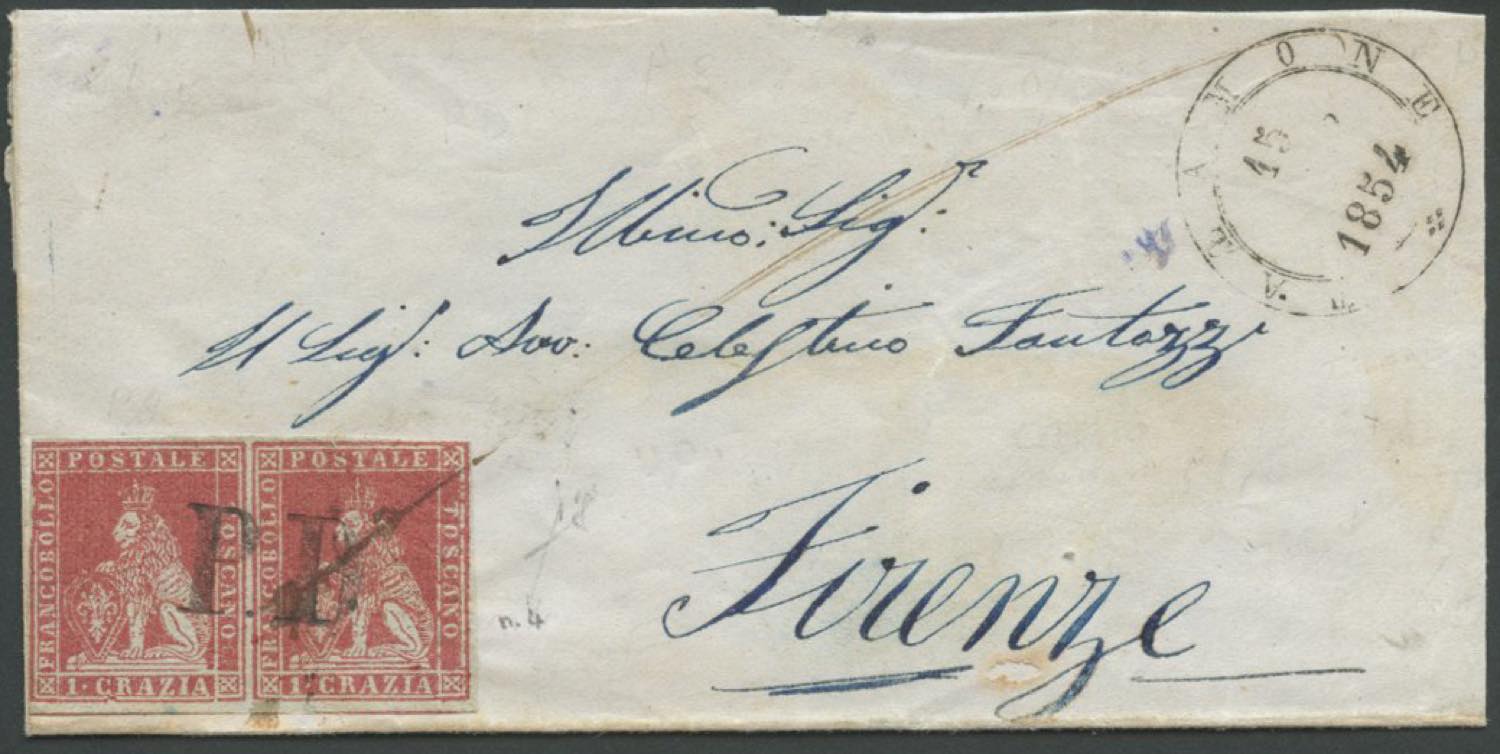 MONE
15
1854
Illmo: Sig:
Il Sig: Avv: Celestino Fantozzi
Firenze
POSTALE
FRANCOBOLLO
TOSCANO
1·CRAZIA
POSTALE
FRANCOBOLLO
TOSCANO
1·CRAZIA
P.D.
n. 4